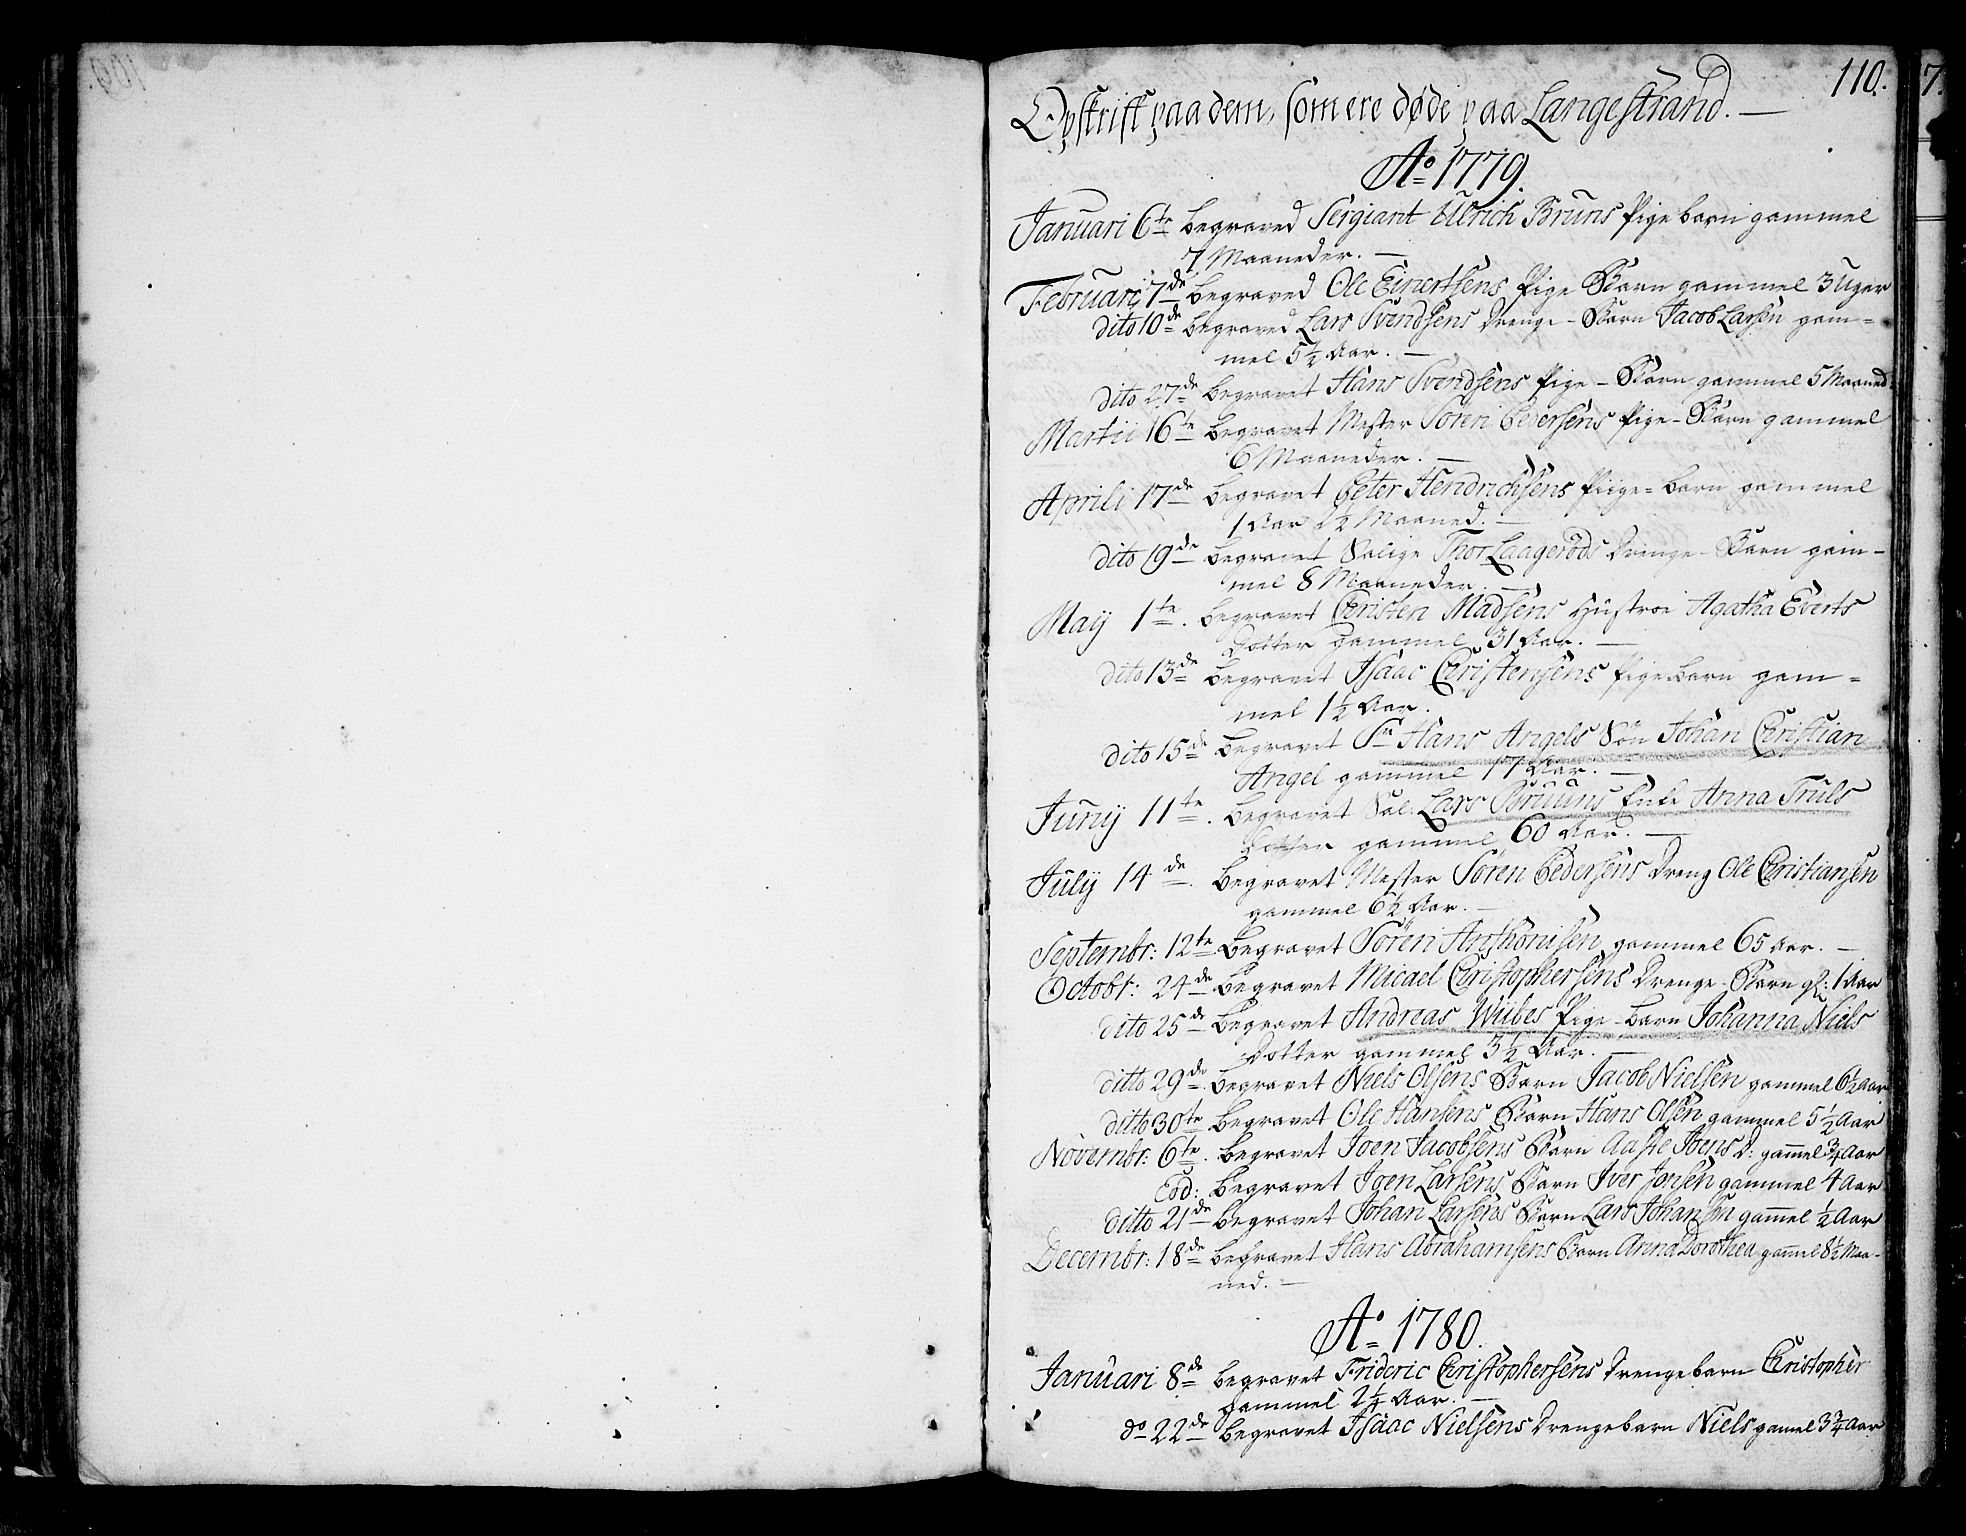 110.
Opskrift paa dem, som ere døde paa Langestrand. —
Ao 1779.
Januari 6te begraved Sergiant Ulrich Bruns Pige barn gammel
7 Maaneder. —
Februari 7de begraved Ole Einertsens Pige Barn gammel 3 Uger
dito 10de begraved Lars Svendsens Drenge-Barn Jacob Larsen gam=
mel 5½ Aar. —
dito 27de begravet Hans Svendsens Pige-Barn gammel 5 Maaned:
Martii 16te begravet Mester Sören Pedersens Pige-Barn gammel
6 Maaneder. —
Aprili 17de begravet Peter Hendrichsens Piige-barn gammel
1 Aar 2½ Maaned. —
dito 19de begravet Salige Thor Laagerøds Drenge-Barn gam-
mel 8 Maaneder. —
Maij 1te. begravet Christen Madsens Hustroe Agatha Everts
Dotter gammel 31 Aar. —
dito 13de begravet Isaac Christensens Pigebarn gam=
mel 1½ Aar.
dito 15de begravet Sr Hans Angels Sön Johan Christian
Angel gammel 17 Aar. —
Junij 11te. begravet Sal. Lars Bruuns Enke Anna Truls
Dotter gammel 60 Aar. —
Julij 14de. begravet Mester Sören Pedersens Dreng Ole Christiansen
gammel 6½ Aar. —
Septembr: 12te begravet Sören Anthonisen gammel 65 Aar. —
Octobr: 24de begravet Micael Christophersens Drenge-Barn gl: 1 Aar
dito 25de begravet Andreas Wiibes Pige-barn Johanna Niels
Dotter gammel 3½ Aar. —
ditto 29de begravet Niels Olsens Barn Jacob Nielsen gammel 6½ Aar
ditto 30te begravet Ole Hansens Barn Hans Olsen gammel 5½ Aar
Novembr: 6te. begravet Joen Jacobsens Barn Aaste Joens D: gam̄el ¾ Aar
Eod: begravet Joen Larsens Barn Iver Jonsen gammel 4 Aar
ditto 21de begravet Johan Larsens Barn Lars Johansen gam̄el ½ Aar
Decembr: 18de begravet Hans Abrahamsens Barn Anna Dorothea gam̄el 8½ Maa-
ned. —
Ao 1780.
Januari 8de begravet Frideric Christophersens Drengebarn Christopher
gammel 2¼ Aar. —
do 22de begravet Isaac Nielsens Drengebarn Niels gamel 3¾ Aar